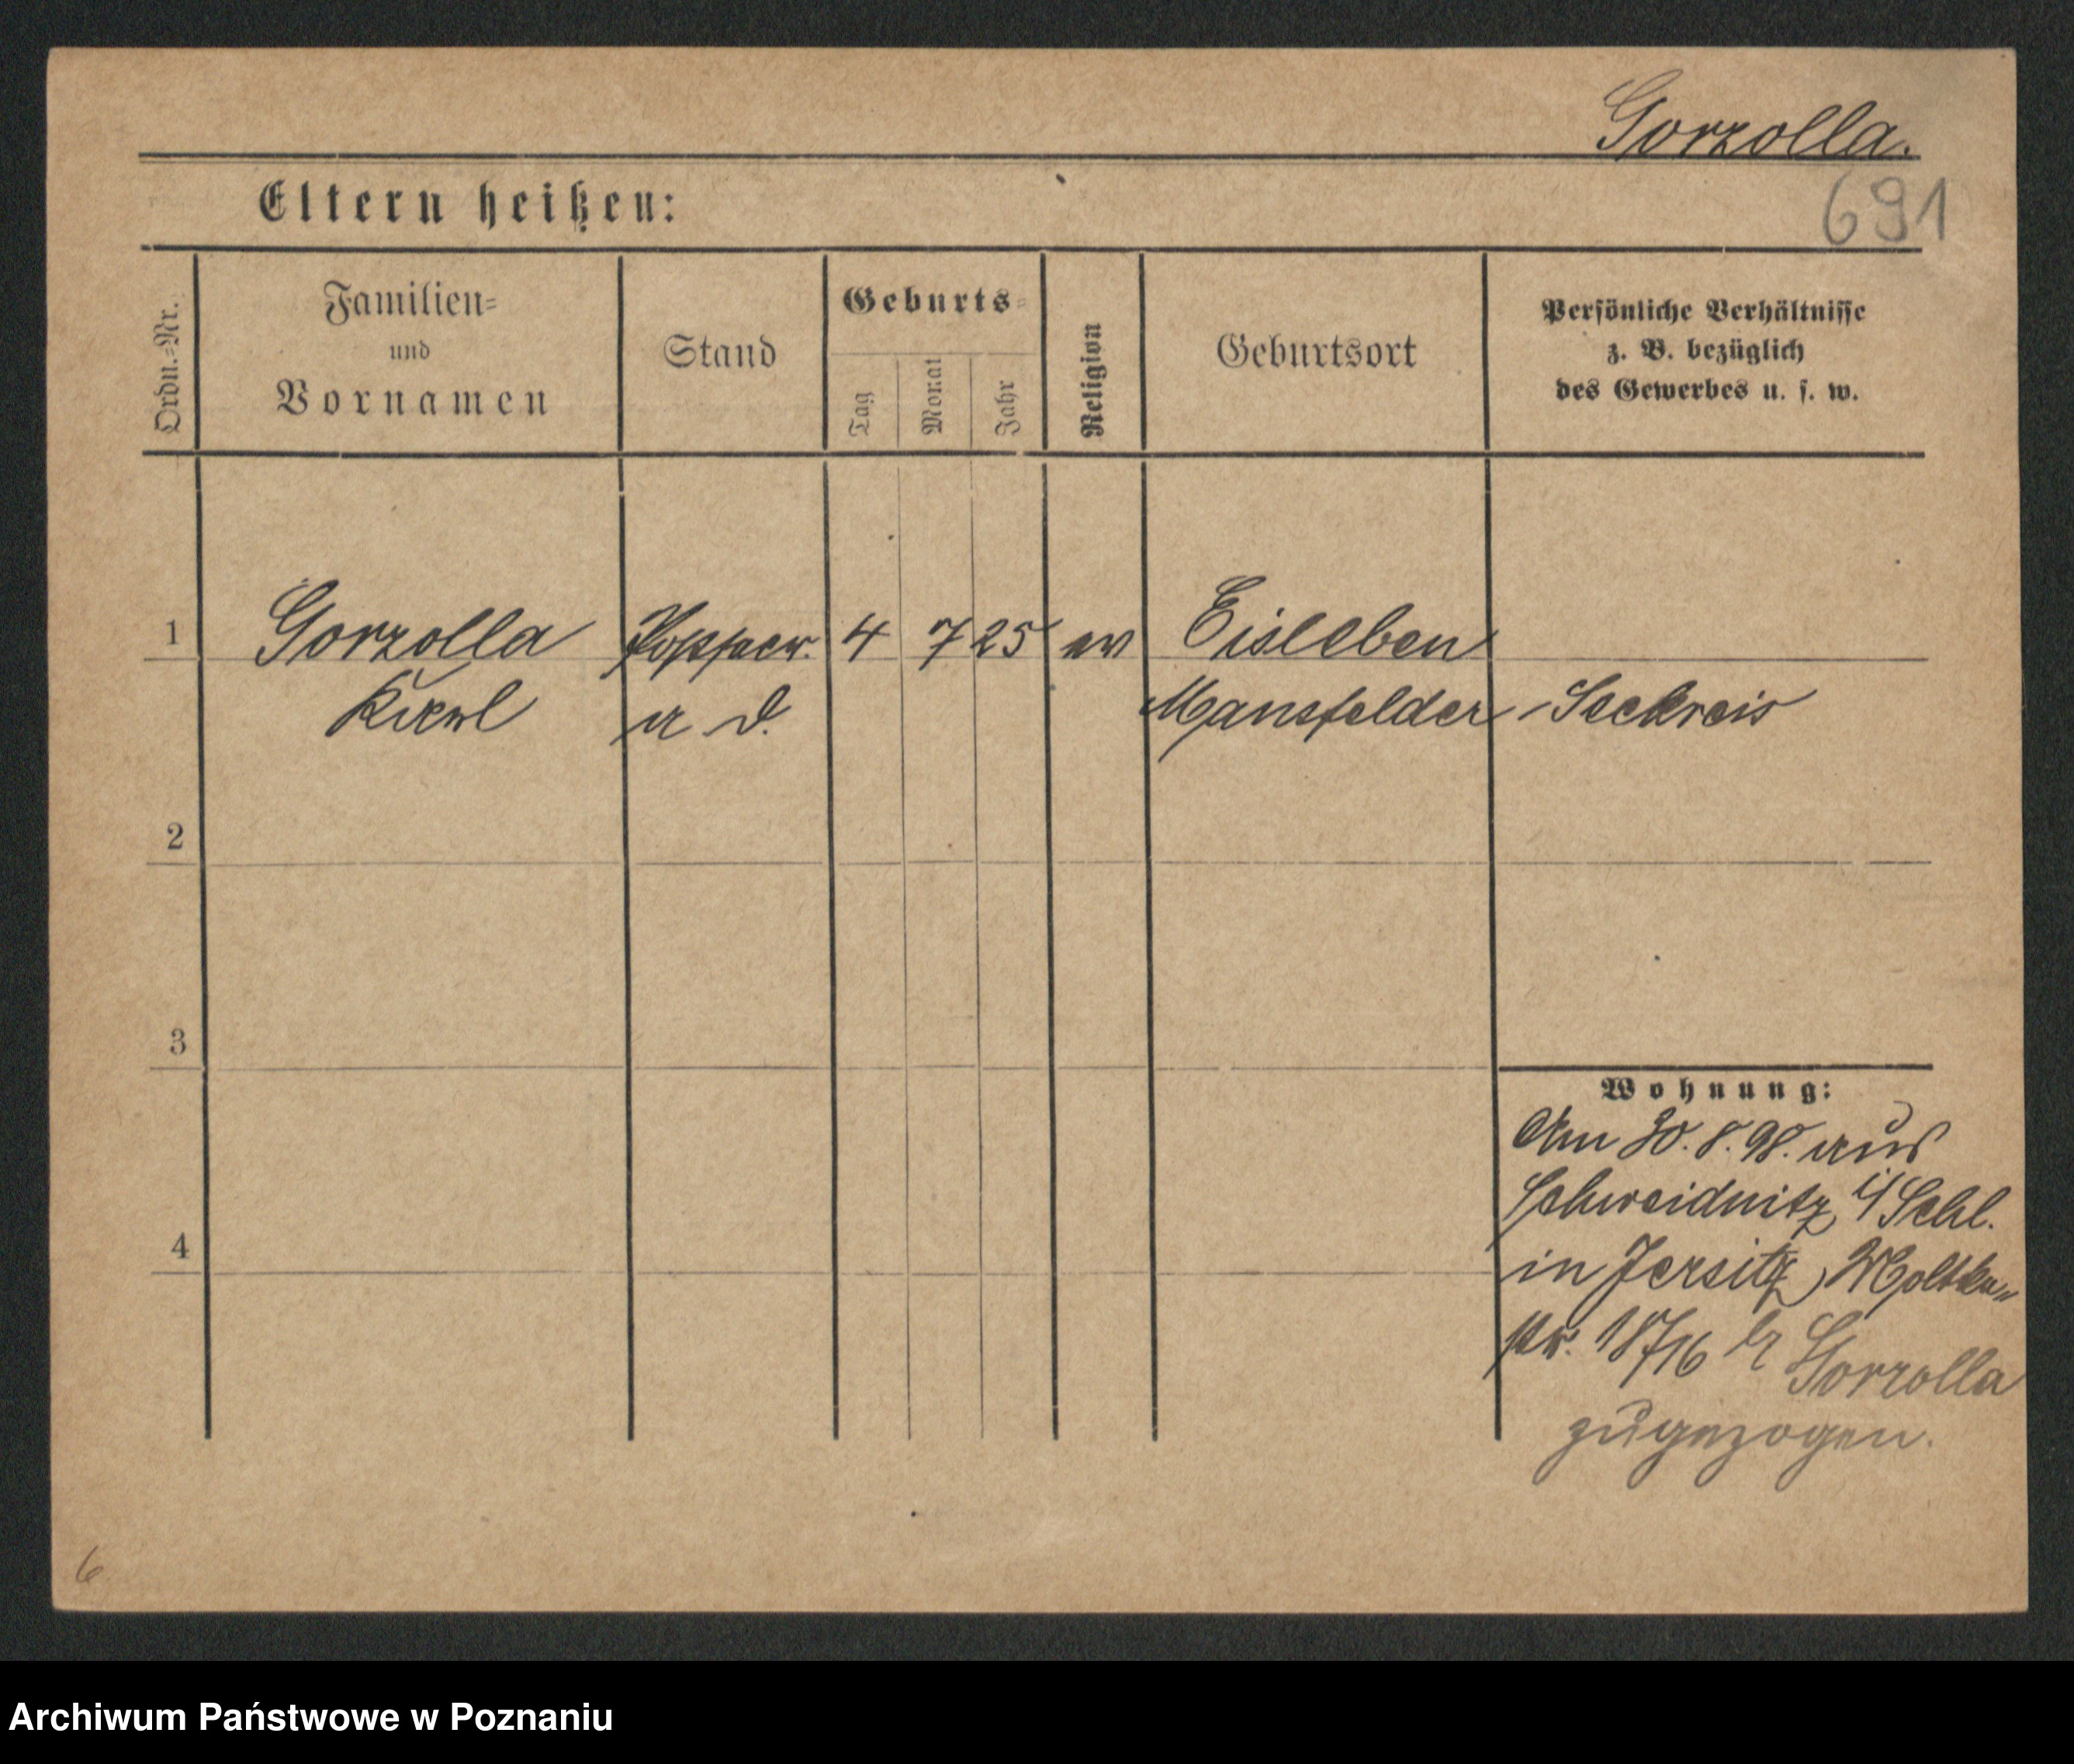 Gorzolla.
691
Eltern heißen:
Ordn.-Nr.
Familien-
und
Vornamen
Stand
Geburts-
Tag
Monat
Jahr
Religion
Geburtsort
Persönliche Verhältnisse
z. B. bezüglich
des Gewerbes u. s. w.
1 Gorzolla 4 7 25 ev Eisleben
Karl a D. Mansfelder-Seekreis
2
3
Wohnung:
Am 30.8.98. aus
Schweidnitz i/Schl.
4
in Jersitz, Moltke-
str. 18/16 b Gorzolla
zugezogen.
6
Archiwum Państwowe w Poznaniu